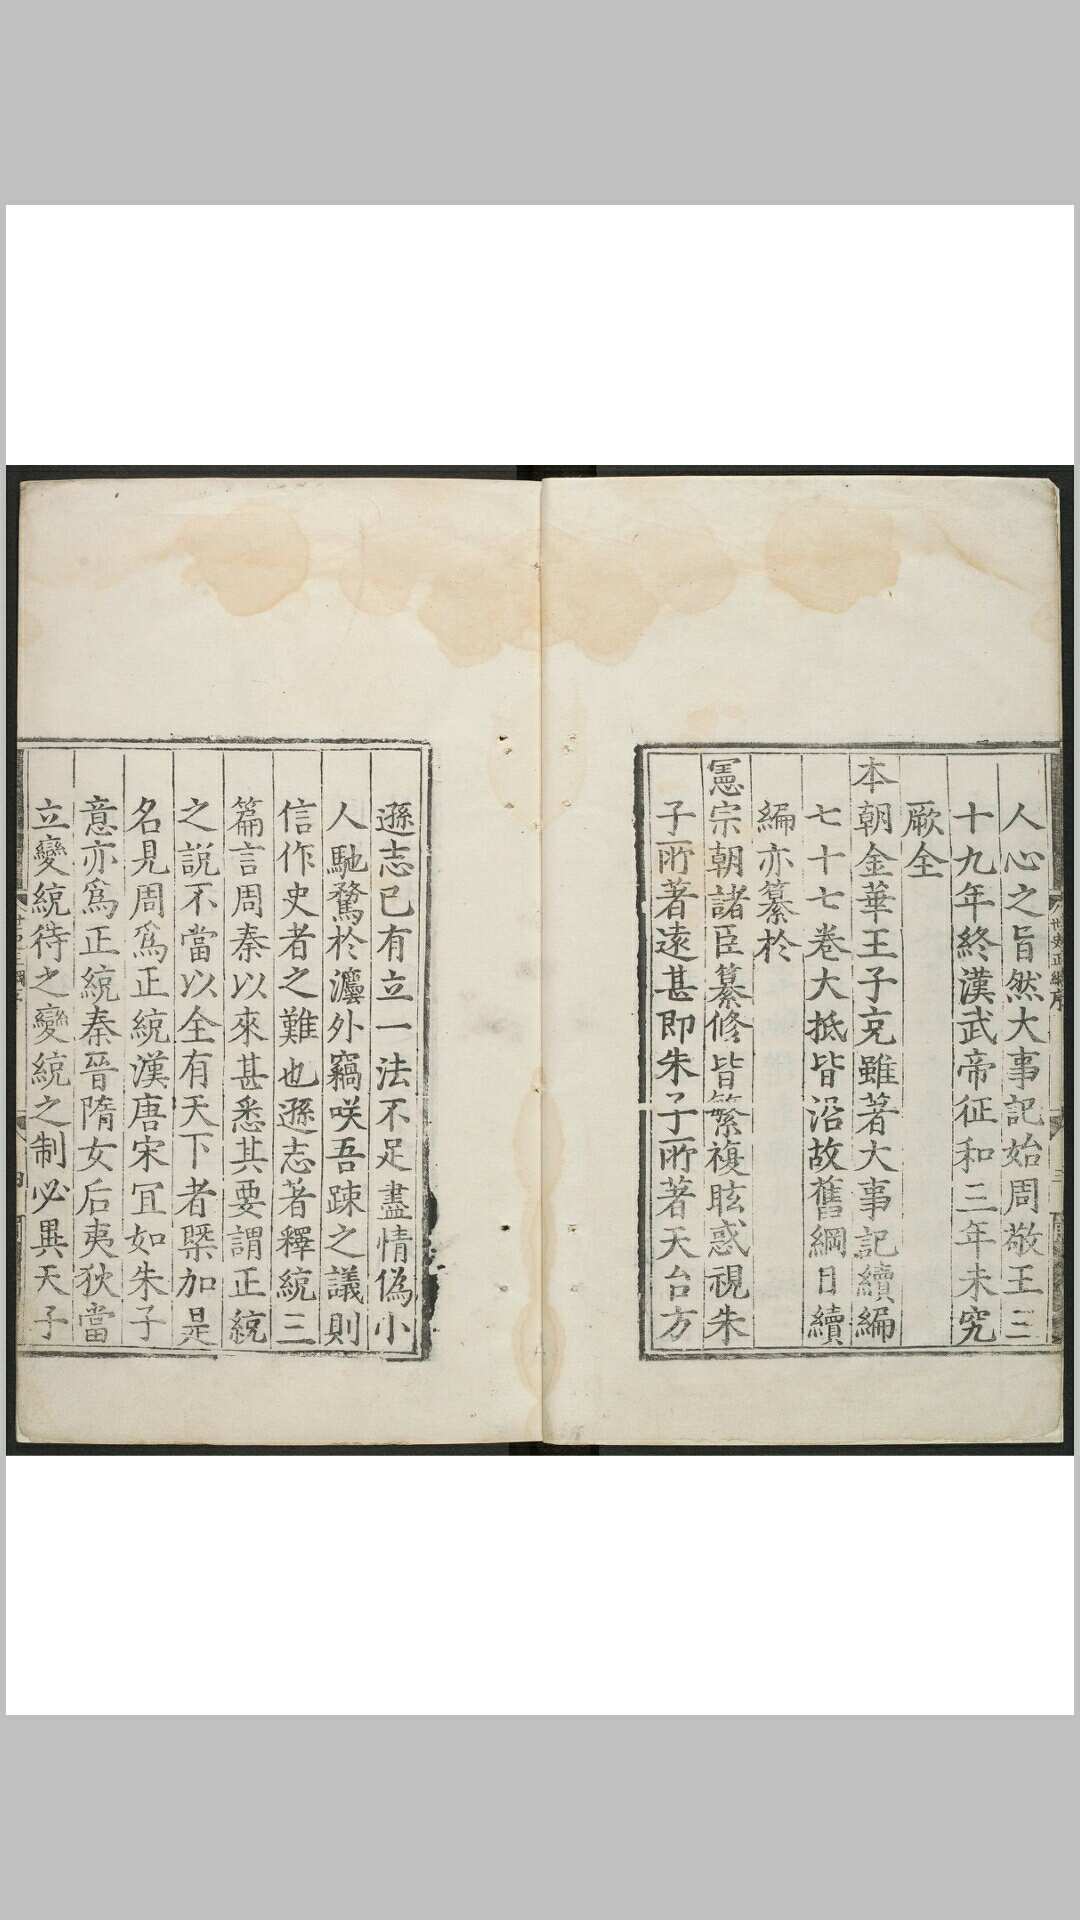 世史正綱序
三
人心之旨然大事記始周敬王三
十九年終漢武帝征和三年未究
厥全
本朝金華王子充雖著大事記續編
七十七卷大抵皆沿故舊綱目續
編亦纂於
憲宗朝諸臣纂修皆繁複眩惑視朱
子所著遠甚即朱子所著天台方
遜志已有立一法不足盡情偽小
人馳騖於灋外竊咲吾踈之議則
信作史者之難也遜志著釋統三
篇言周秦以來甚悉其要謂正統
之說不當以全有天下者槩加是
名見周爲正統漢唐宋冝如朱子
意亦爲正統秦晉隋女后夷狄當
立變統待之變統之制必異天子
四